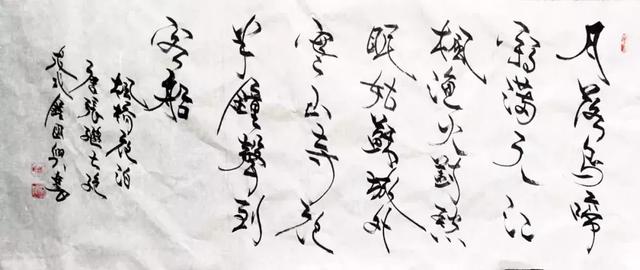 月落烏啼
霜滿天江
楓漁火對愁
眠姑蘇城外
寒山寺夜
半鐘聲到
客船
楓橋夜泊
唐張繼
書